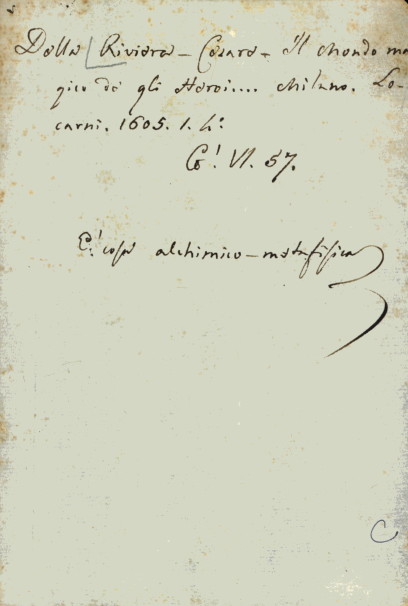 Della Riviera - Cesare - Il Mondo ma
gico de gli Heroi.... Milano. Lo-
carni. 1605. 1. 4.°
VI. 57.
E' cosa alchimico-metafisica
C